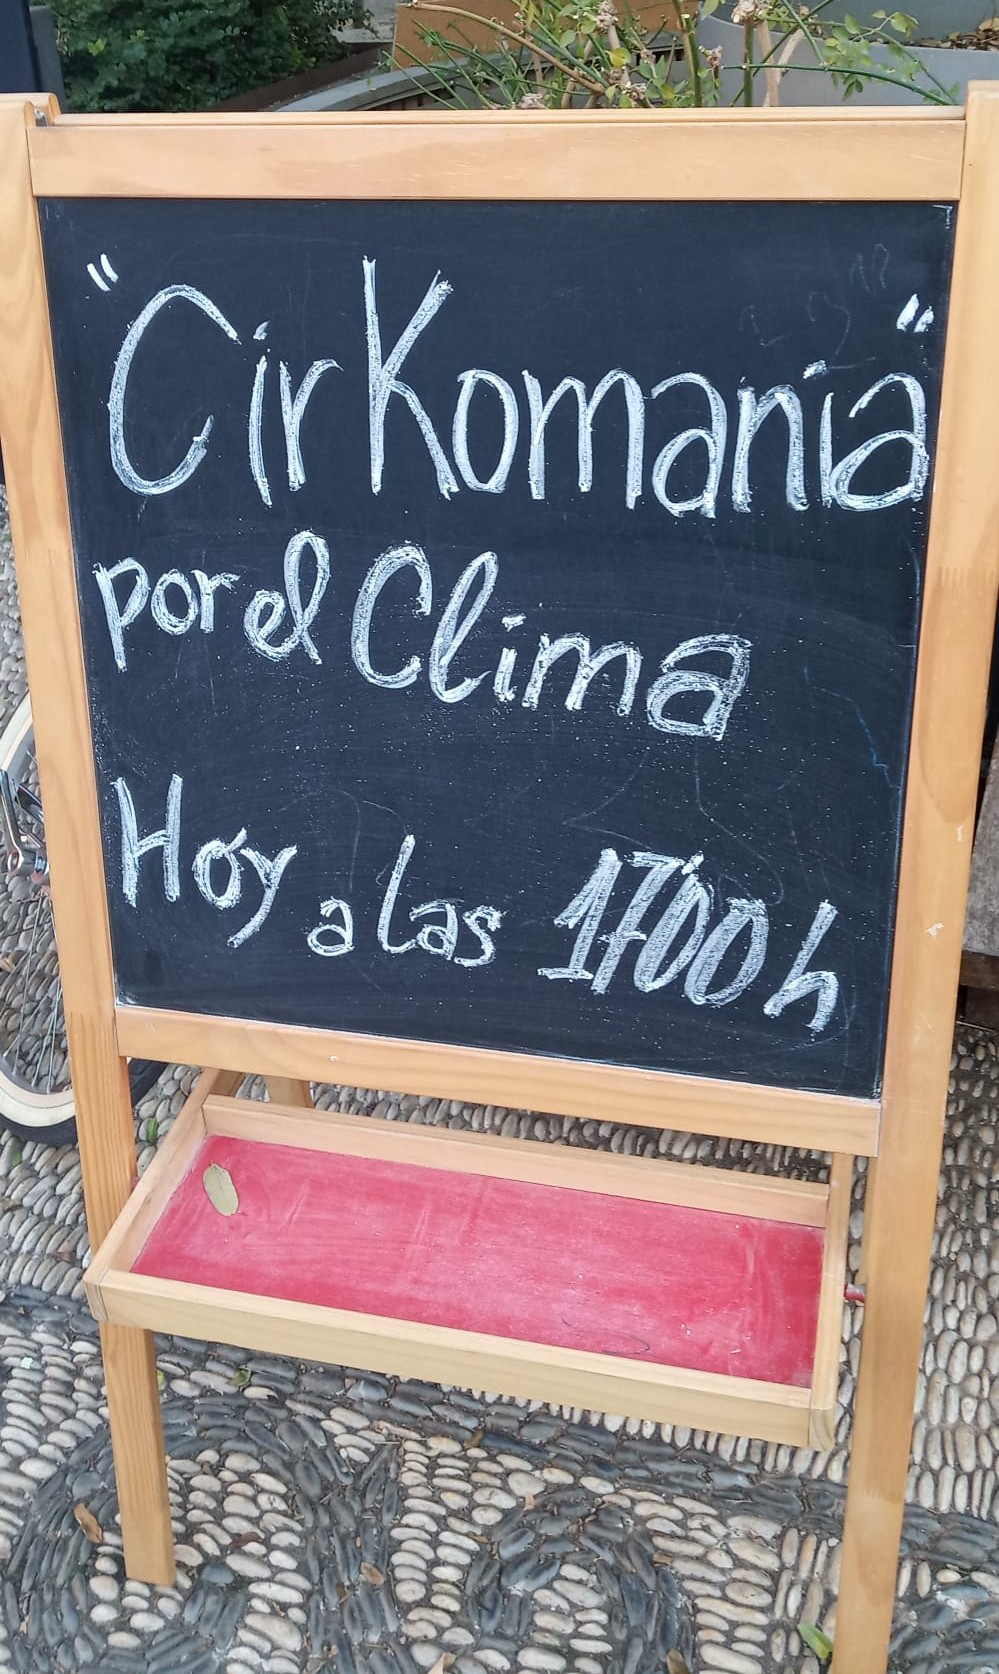 "CirKomanía"
por el Clima
Hoy a las 17'00 h